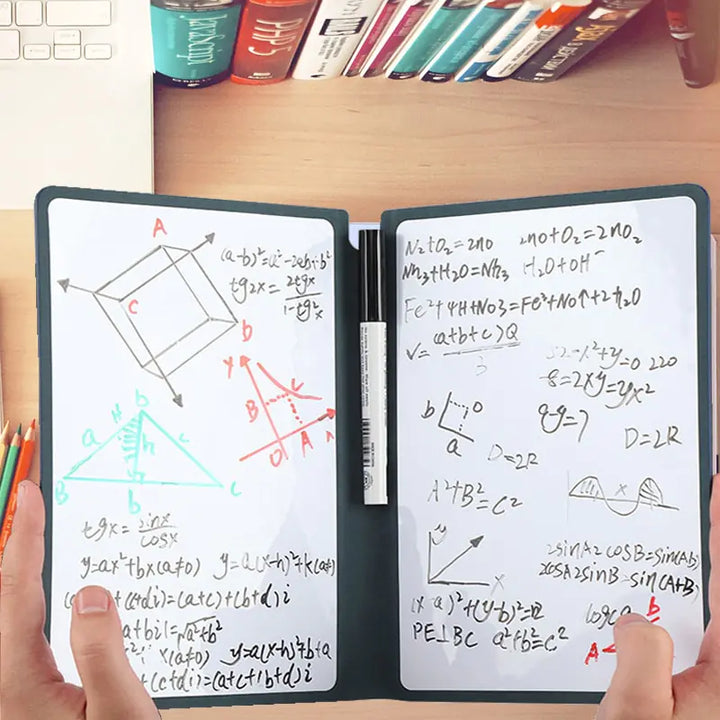 JavaScript
PHP5
A
(a-b)²=a²-2ab+b²
tg2x=2tgx/1-tg²x
C
D
Y
B
O
A
b
a
h
c
B
b
C
tgx=sinx/cosx
y=ax²+bx(a≠0) y=a(x-h)²+k(a≠)
+(c+di)=(a+c)+(b+d)i
a+bi|=√a²+b²
x(a≠0) y=a(x-h)²+b+a
+(c+di)=(a+c+(b+d)i
N₂+O₂=2no 2no+O₂=2nO₂
Nh₃+H₂O=Nh₃ H₂O+OH⁻
Fe²+4H+NO3=Fe³+NO↑+2h₂O
V=(a+b+c)Q/3
+y=0 220
8=2xy=yx²
b
O
a
D=2R
D=2R
A²+B²=C²
x
y
X
2sinA2cosB=sin(AB)
2cosA2sinB=sin(A+B)
(x-a)²+(y-b)²=
PE⊥BC a²+b²=c²
log
b
A